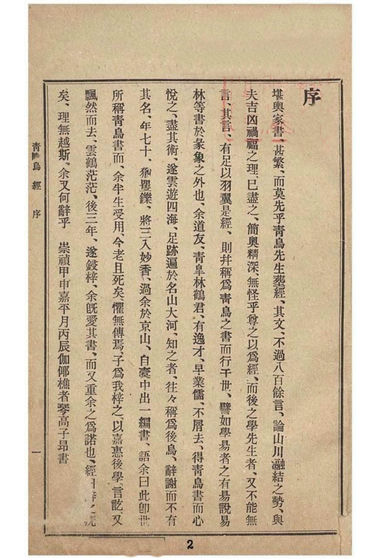 序
堪輿家書、甚繁、而莫先乎青烏先生葬經、其文、不過八百餘言、論山川融結之勢、與
夫吉凶禍福之理、已盡之、簡奧精深、無怪乎尊之以爲經、而後之學先生者、又不能無
言、其言、有足以羽翼是經、則幷稱爲青烏之書而行于世、譬如學易者之有易說易
林等書於彖象之外也、余道友、青阜林鶴君、有逸才、早業儒、不屑去、得青烏書而心
悅之、盡其術、遂雲遊四海、足跡遍於名山大河、知之者、往々稱爲後烏、辭謝而不有
其名、年七十、猶矍鑠、將三入妙香、過余於京山、自橐中出一編書、語余曰此卽世
所稱青烏書、而余半生受用、今老且死矣懼無傳焉子爲我梓之以嘉惠後學、言訖、又
飄然而去、雲鶴茫茫、後三年、遂鋟梓、余旣愛其書、而又重余之爲諾也、經
矣、理無越斯、余又何辭乎 崇禎甲申嘉平月丙辰伽倻樵者琴高子昂書
青烏經 序
一
2